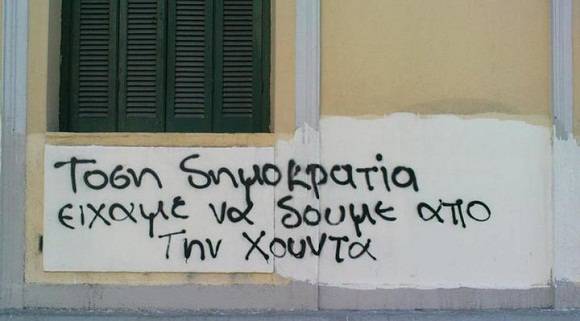 Τοση δημοκρατία
ειχαμε να δουμε απο
την χουντα